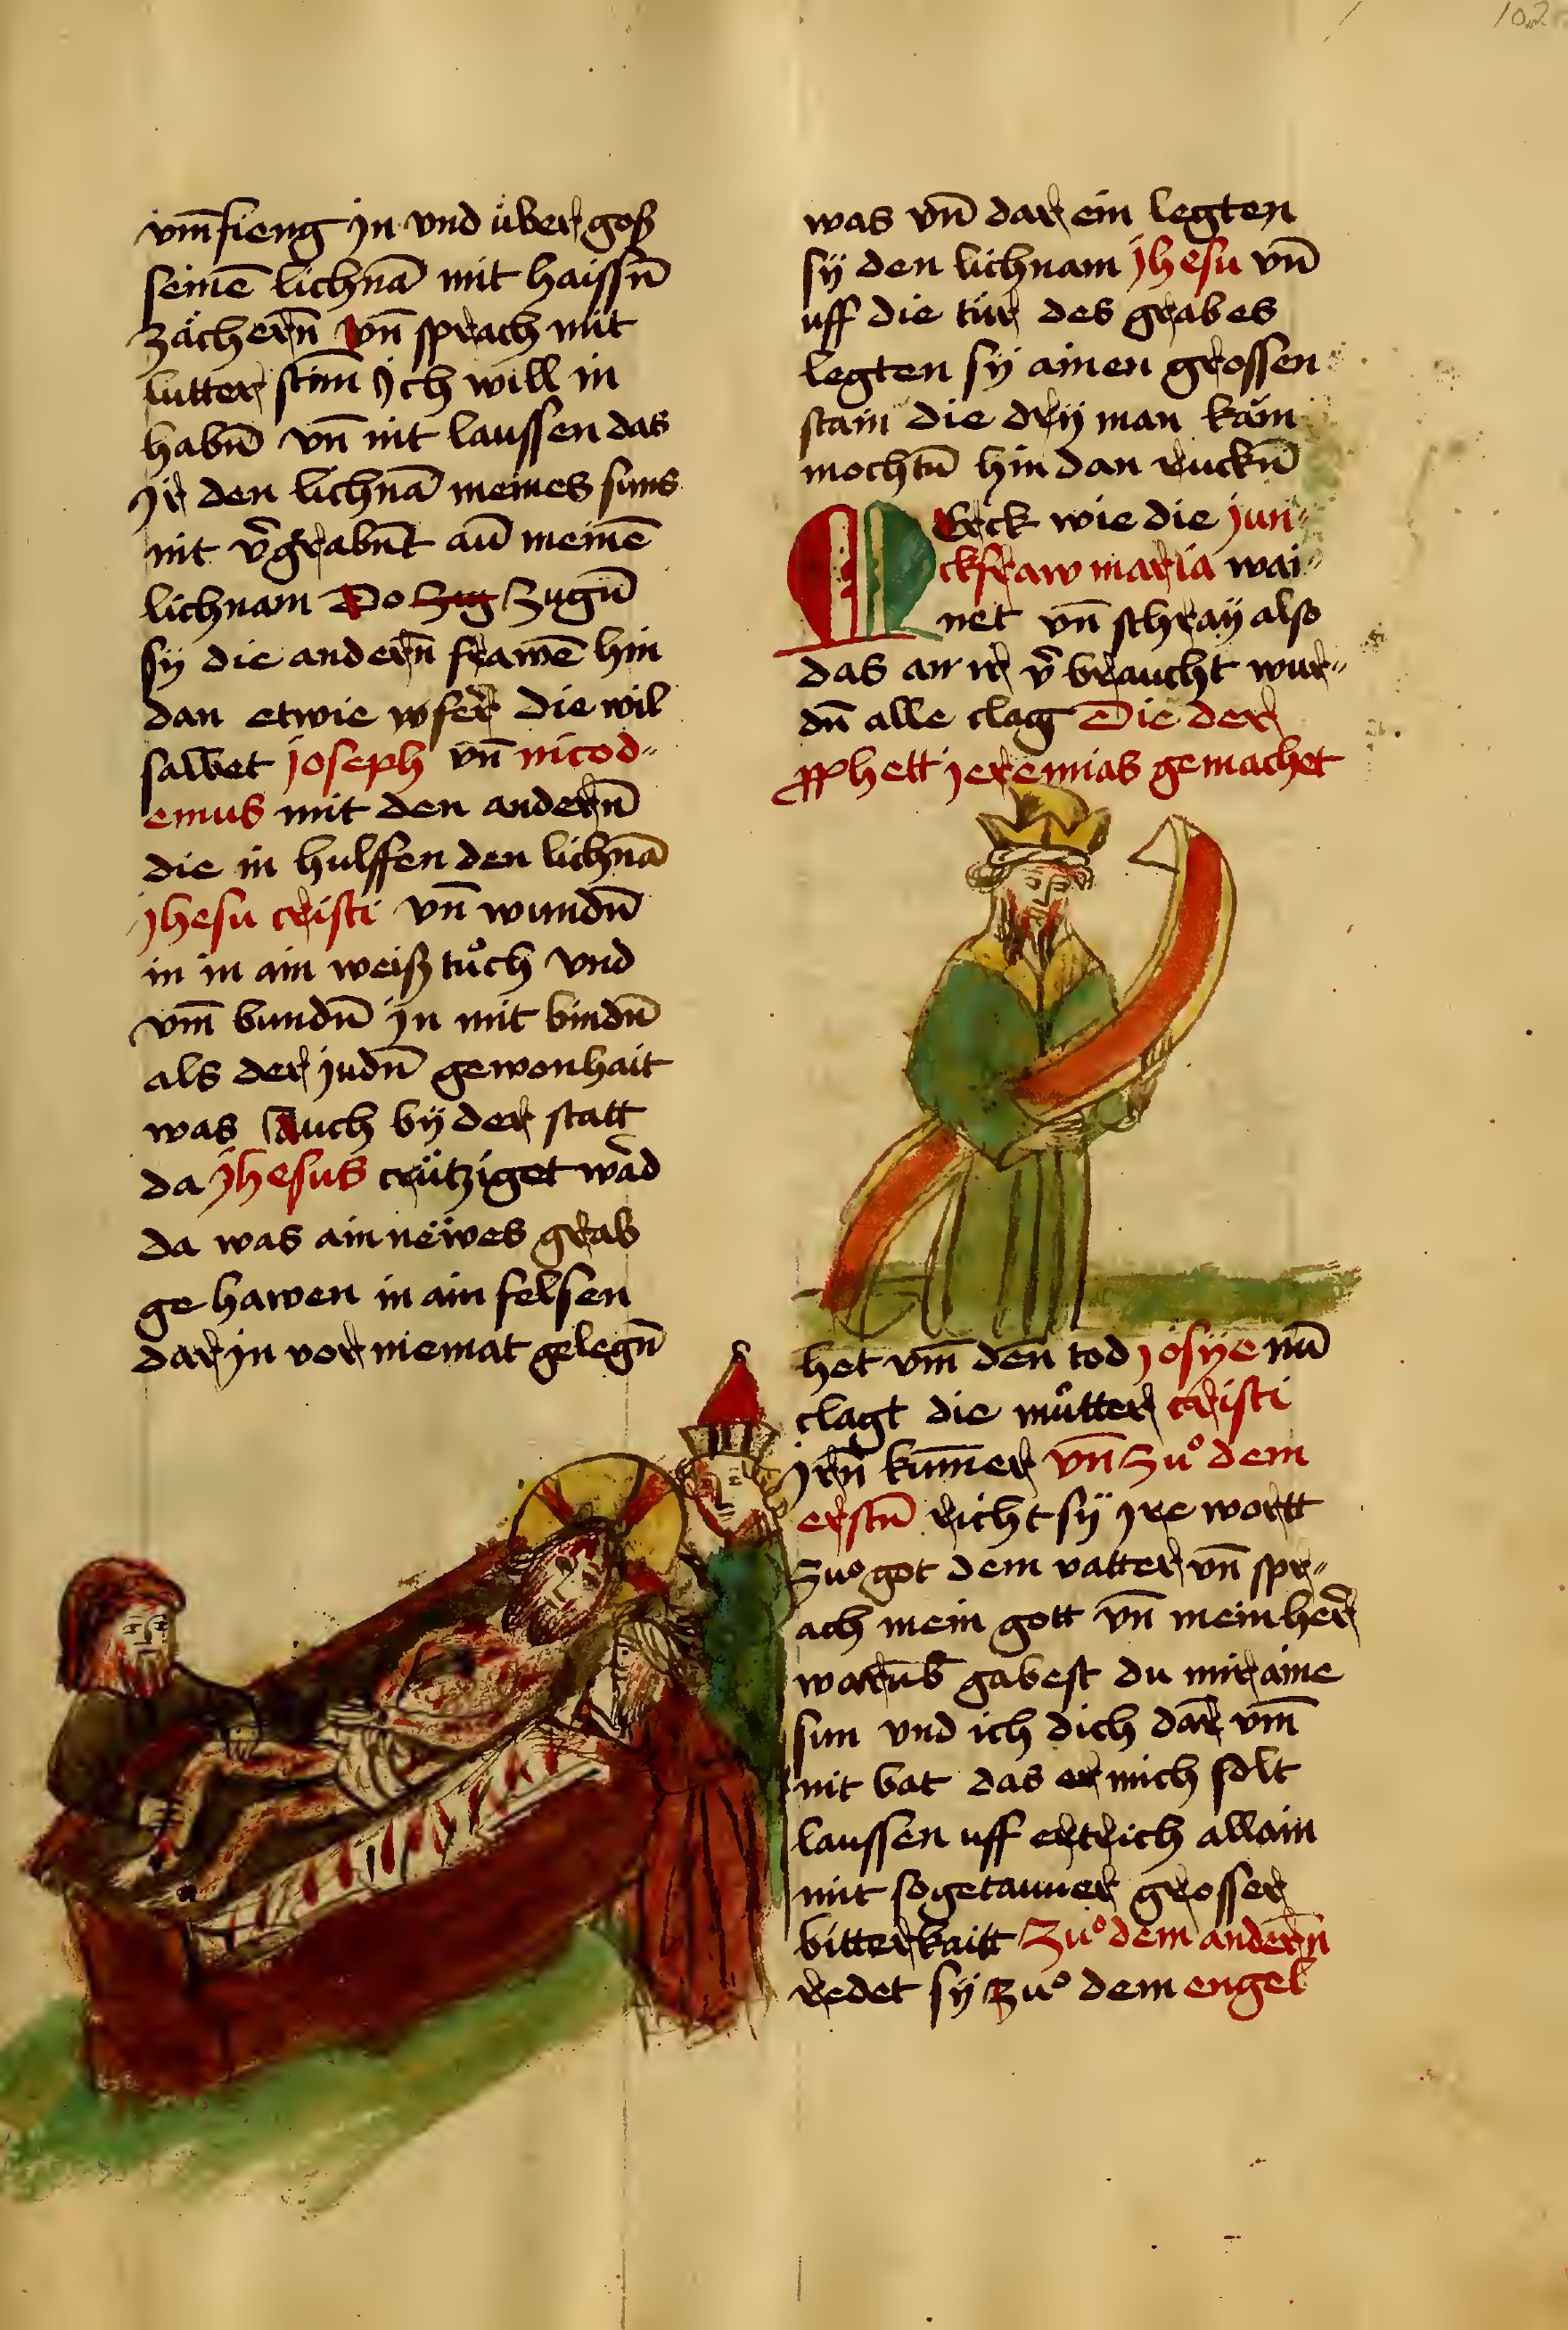 102
vm̄fieng jn vnd über goß
seinē lichnā mit haissn̄
zächern̄ vn̄ sprach mit
lutter stim̄ Ich will in
habn̄ vn̄ nit laussen das
Ir den lichnā meines suns
nit v̄grabn̄t an̄ meinē
lichnam Do zug zugn̄
sÿ die andern̄ frawē hin
dan etwie wfer̄ die wil
salbet joseph vn̄ nicod〃
emus mit den andern̄
die in hulffen den lichnā
jhesu cristi vn̄ wundn̄
in in ain weiß tůch vnd
vm̄ bundn̄ jn mit bindn̄
als der judn̄ gewonhait
was Auch bÿ der statt
da jhesus crütziget wād
da was ain nëwes grab
ge hawen in ain felsen
dar jn vor niemat gelegn̄
was vn̄ dar ein legten
sÿ den lichnam jhesu vn̄
uff die tür des grabes
legten sÿ ainen grossen
stain die drÿ man käm
mochtn̄ hin dan ruckn̄
Merck wie die jun〃
ckfraw maria wai〃
net vn̄ schraÿ also
das an ir v̄braucht wur〃
dn̄ alle clag Die der
ꝓphett jeremias gemachet
het vm̄ den tod josÿe nū
clagt die můtter cristi
Irn̄ kum̄er vn̄ Zuͦ dem
erstn̄ richt sÿ Ire wortt
Zuͦ got dem vatter vn̄ spr〃
ach mein gott vn̄ mein her̄
warūb gabest du mir aine
sun vnd ich dich dar̄ vm̄
nit bat das er mich solt
laussen uff ertrich allain
mit sogetauner grosser
bitterkaitt Zuͦ dem andern̄
redet sÿ zuͦ dem engel